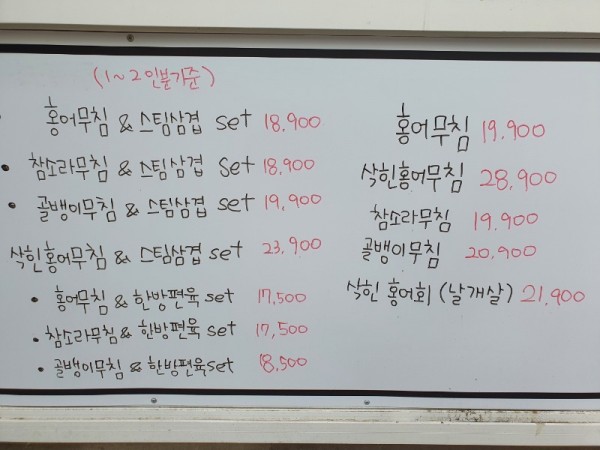 (1~2인분기준)
홍어무침 & 스팀삼겹 set 18,900
• 참소라무침 & 스팀삼겹 set 18,900
• 골뱅이무침 & 스팀삼겹 set 19,900
삭힌홍어무침 & 스팀삼겹 set 23,900
• 홍어무침 & 한방편육 set 17,500
• 참소라무침 & 한방편육 set 17,500
• 골뱅이무침 & 한방편육 set 18,500
홍어무침 19,900
삭힌홍어무침 28,900
참소라무침 19,900
골뱅이무침 20,900
삭힌 홍어회 (날개살) 21,900